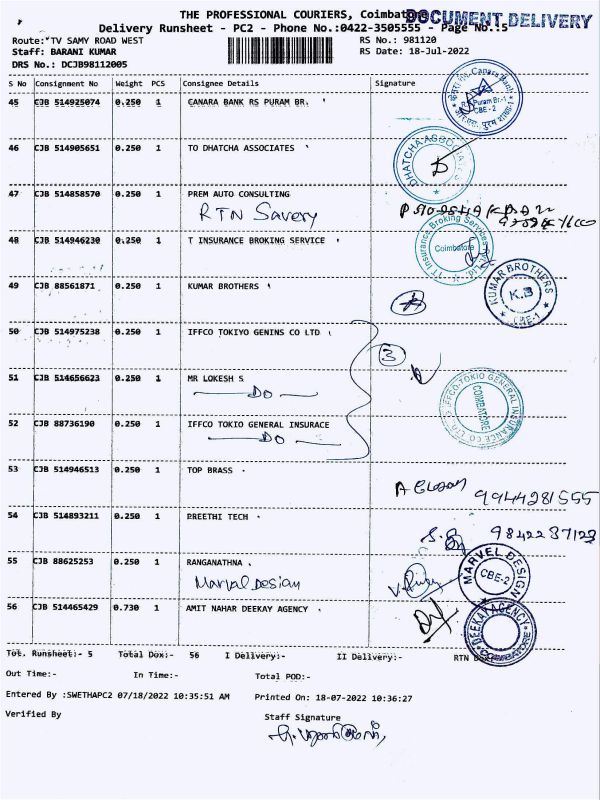 THE PROFESSIONAL COURIERS, Coimbato
DOCUMENT DELIVERY
Delivery Runsheet - PC2 - Phone No.:0422-3505555 - Page No.:5
Route: TV SAMY ROAD WEST
RS No.: 981120
Staff: BARANI KUMAR
RS Date: 18-Jul-2022
DRS No.: DCJB98112005
S No Consignment No Weight PCS Consignee Details Signature
45 CJB 514925074 0.250 1 CANARA BANK RS PURAM BR.
Canara Bank
CBE - 2
46 CJB 514905651 0.250 1 TO DHATCHA ASSOCIATES
DHATCHA ASSOCIATES
47 CJB 514858570 0.250 1 PREM AUTO CONSULTING
RTN Savery
48 CJB 514946230 0.250 1 T INSURANCE BROKING SERVICE
Insurance Broking Services
Coimbatore
49 CJB 88561871 0.250 1 KUMAR BROTHERS
KUMAR BROTHERS
K.B
CBE-1
50 CJB 514975238 0.250 1 IFFCO TOKIYO GENINS CO LTD
3
51 CJB 514656623 0.250 1 MR LOKESH S
DO
IFFCO-TOKIO GENERAL INSURANCE CO LTD
COIMBATORE
52 CJB 88736190 0.250 1 IFFCO TOKIO GENERAL INSURACE
DO
53 CJB 514946513 0.250 1 TOP BRASS
9944281555
54 CJB 514893211 0.250 1 PREETHI TECH
55 CJB 88625253 0.250 1 RANGANATHNA
Marval Design
MARVEL DESIGN
CBE-2
56 CJB 514465429 0.730 1 AMIT NAHAR DEEKAY AGENCY
DEEKAY AGENCY
COIMBATORE
Tot. Runsheet:- 5 Total Dox:- 56 I Delivery:- II Delivery:- RTN Dox:-
Out Time:- In Time:- Total POD:-
Entered By :SWETHAPC2 07/18/2022 10:35:51 AM Printed On: 18-07-2022 10:36:27
Verified By
Staff Signature